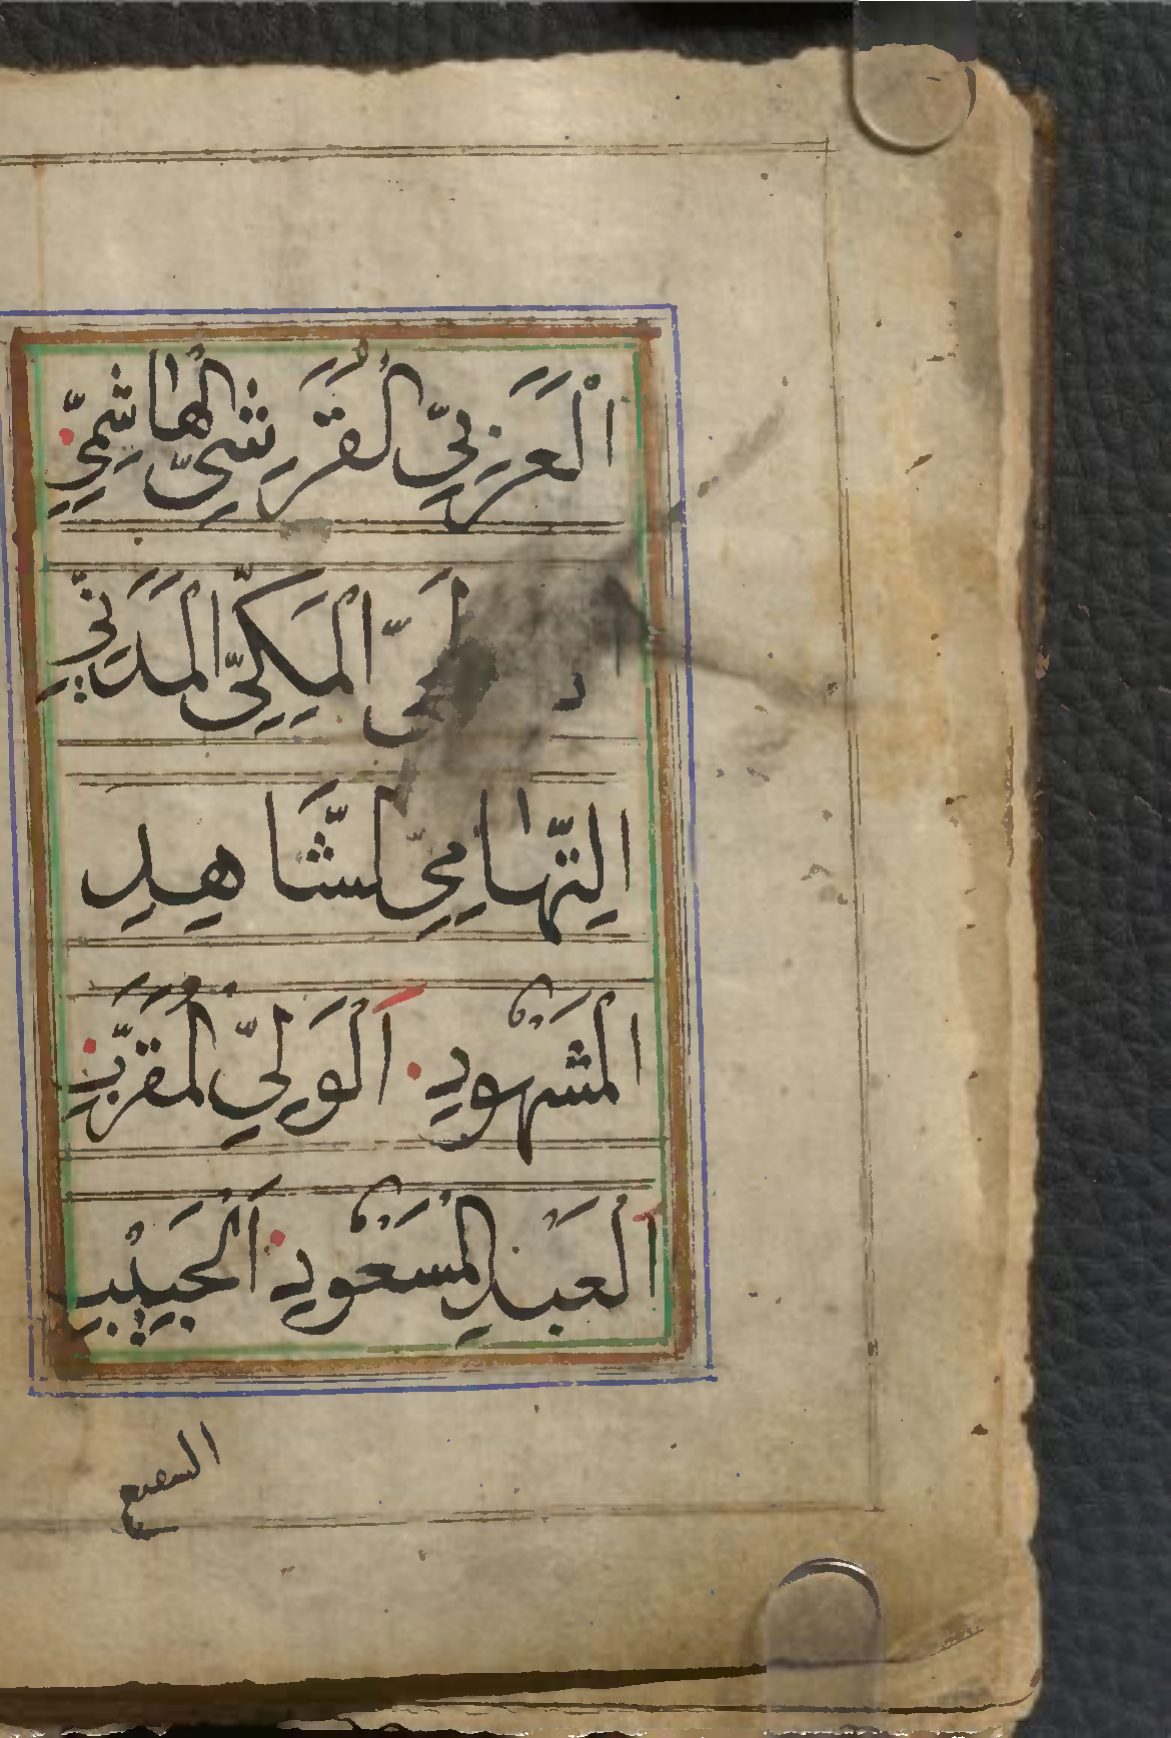 الْعَرَبِيِّ الْقُرَشِيِّ الْهَاشِمِيِّ
الْمَكِّيِّ الْمَدَنِيِّ
التِّهَامِيِّ الشَّاهِدِ
الْمَشْهُودِ اَلْوَلِيِّ الْمُقَرَّبِ
اَلْعَبْدِ الْمَسْعُودِ اَلْحَبِيبِ
الشفيع